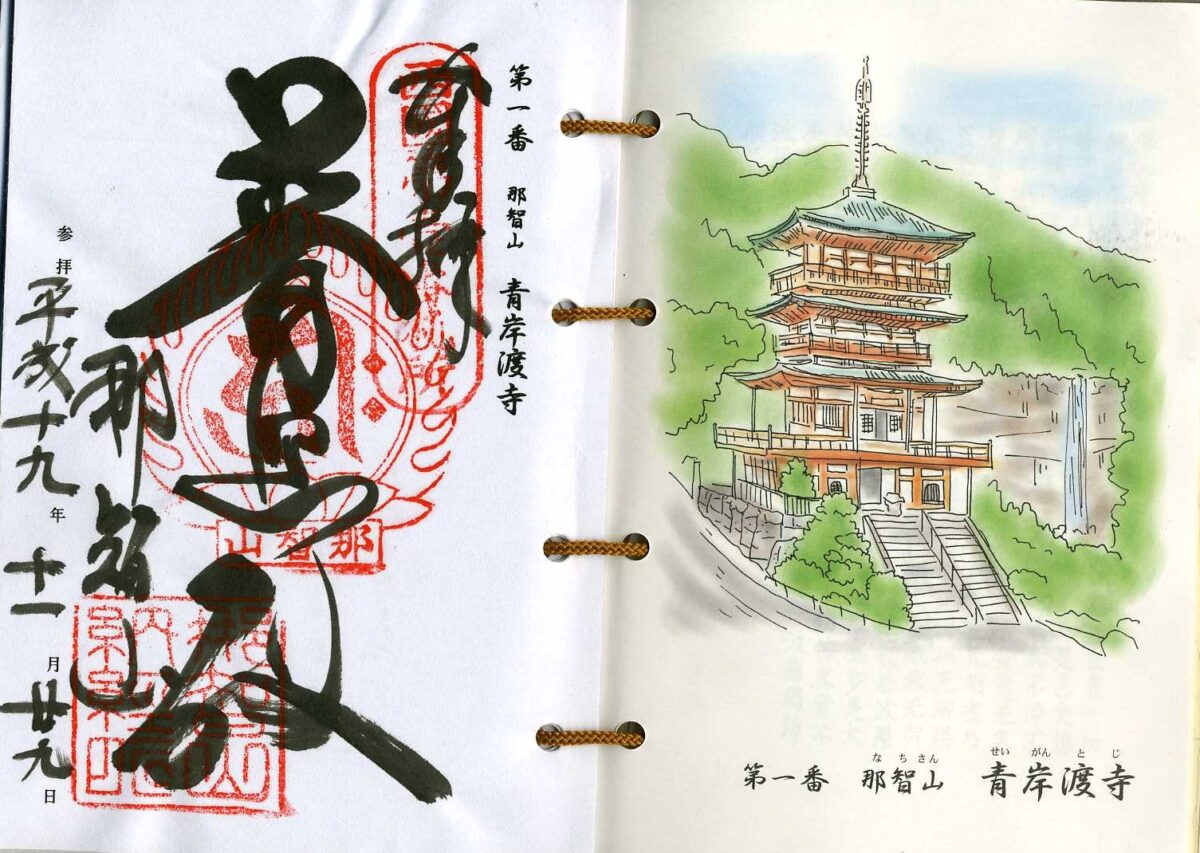 第一番 那智山 青岸渡寺
奉拝
普照殿
那智山
那智山
参拝 平成十九年 十一月 廿九日
なちさん せいがんとじ
第一番 那智山 青岸渡寺